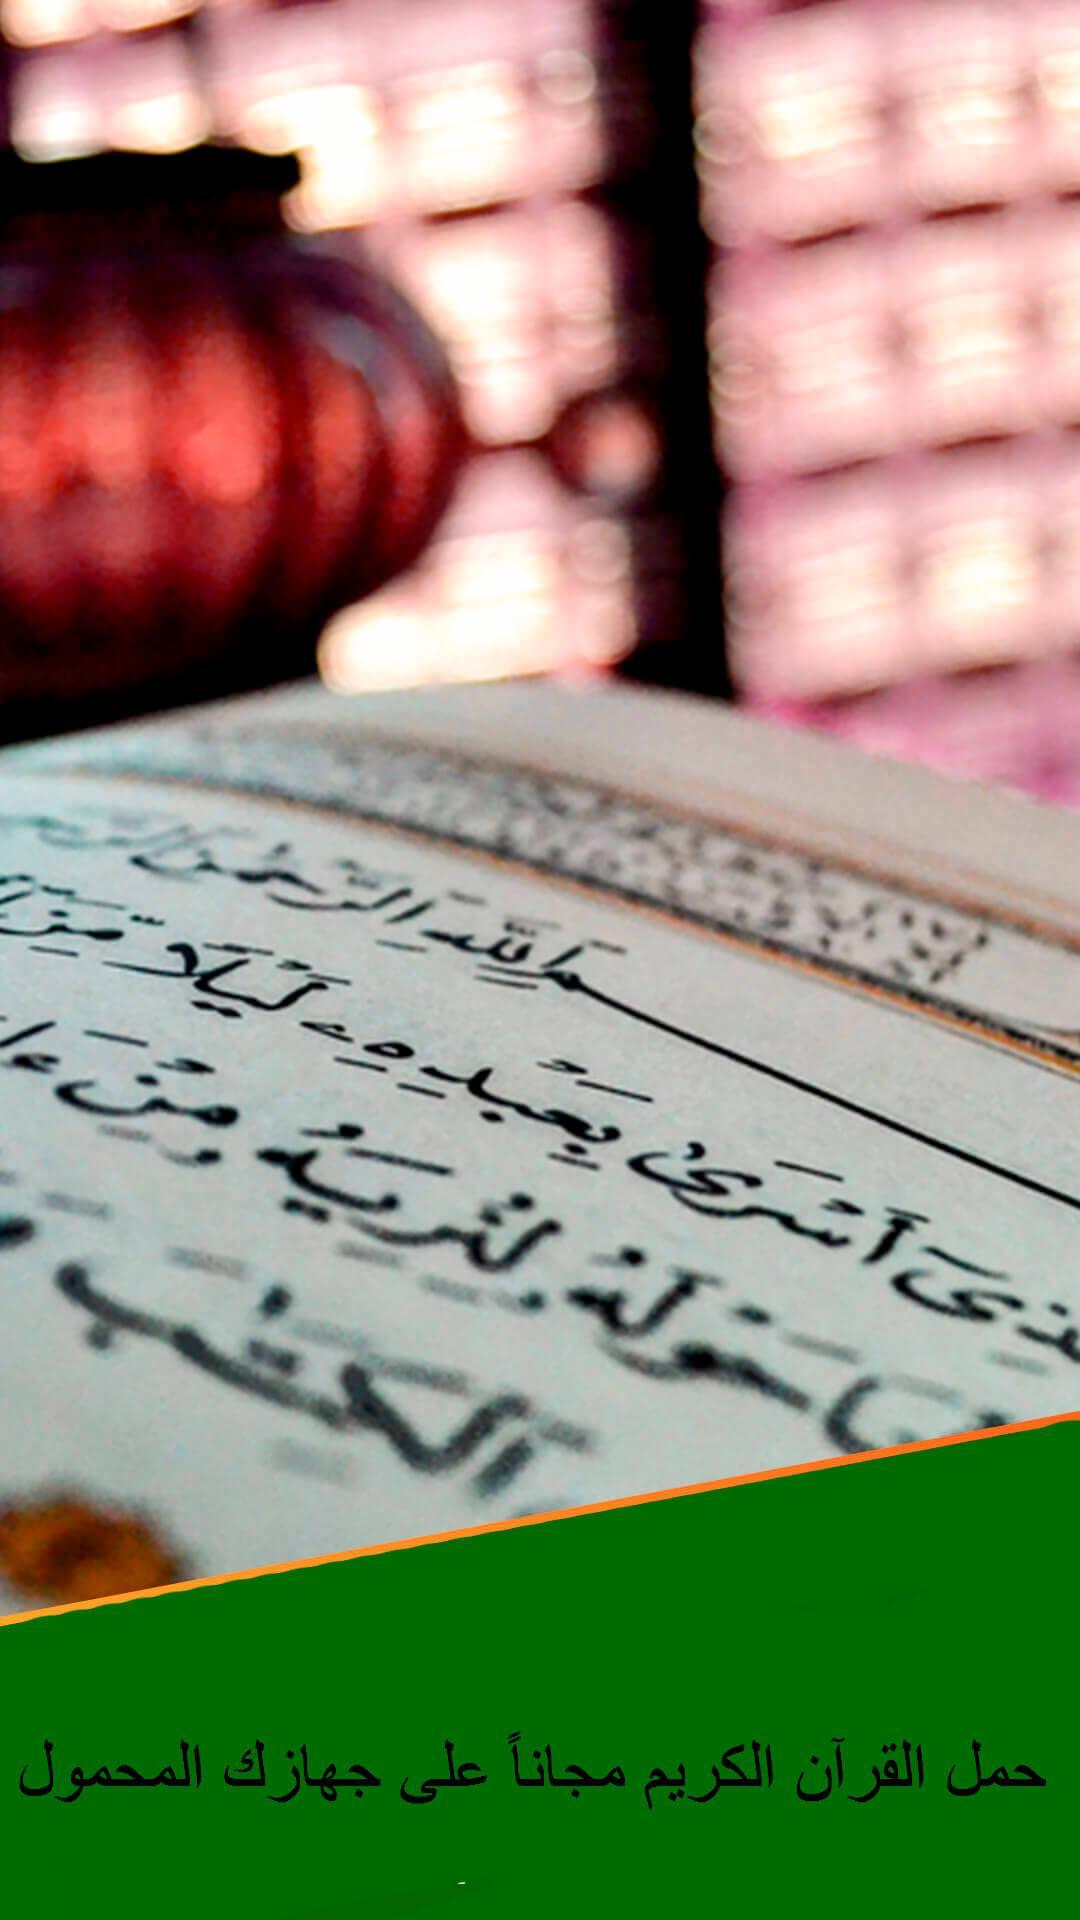 بِسْمِ ٱللَّهِ ٱلرَّحْمَٰنِ
أَسْرَىٰ بِعَبْدِهِۦ لَيْلًا مِّنَ
حَوْلَهُۥ لِنُرِيَهُۥ مِنْ
ٱلْكِتَٰبَ
حمل القرآن الكريم مجاناً على جهازك المحمول